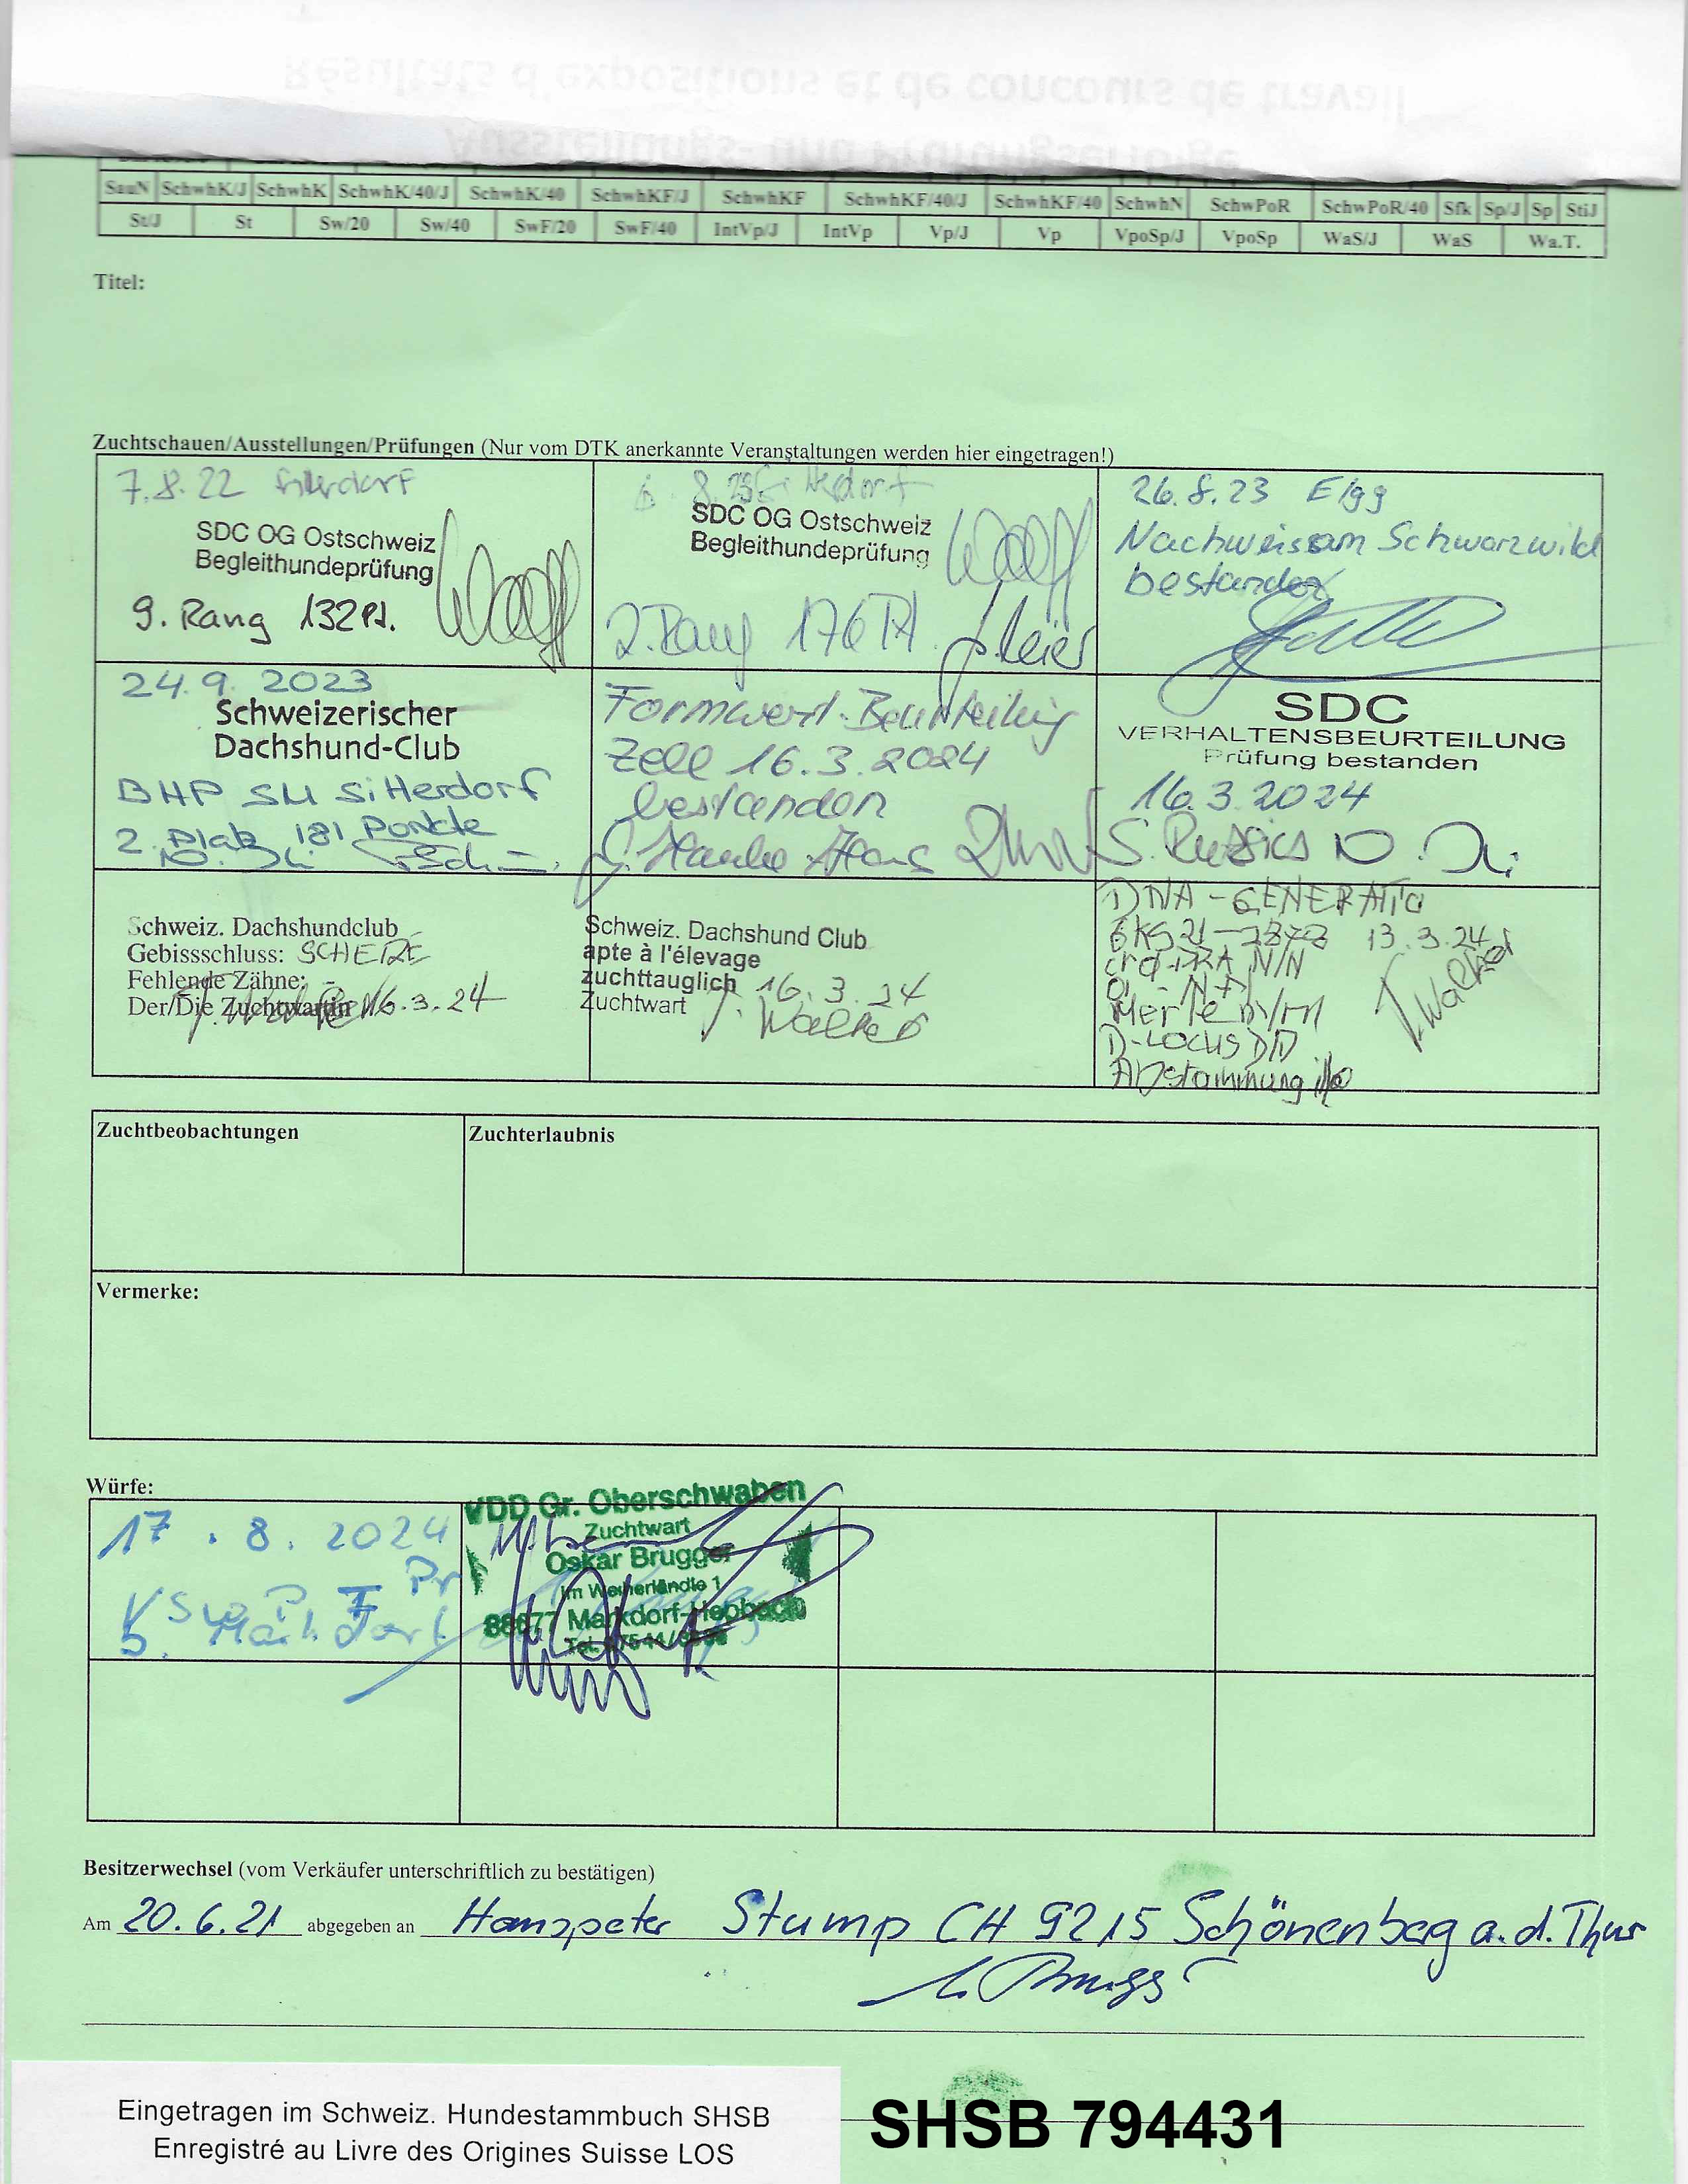 Résultats d'expositions et de concours de travail
Ausstellungs- und Prüfungserfolge
SauN SchwhK/J SchwhK SchwhK/40/J SchwhK/40 SchwhKF/J SchwhKF SchwhKF/40/J SchwhKF/40 SchwhN SchwPoR SchwPoR/40 Sfk Sp/J Sp StiJ
St/J St Sw/20 Sw/40 SwF/20 SwF/40 IntVp/J IntVp Vp/J Vp VpoSp/J VpoSp WaS/J WaS Wa.T.
Titel:
Zuchtschauen/Ausstellungen/Prüfungen (Nur vom DTK anerkannte Veranstaltungen werden hier eingetragen!)
7.8.22
SDC OG Ostschweiz
Begleithundeprüfung
9. Rang 132Pt.
SDC OG Ostschweiz
Begleithundeprüfung
2. Rang 176 Pt.
26.8.23 Elgg
Nachweis am Schwarzwild
bestanden
24.9.2023
Schweizerischer
Dachshund-Club
BHP SU Sitterdorf
2. Platz 181 Punkte
Formwert-Beurteilung
Zell 16.3.2024
bestanden
SDC
VERHALTENSBEURTEILUNG
Prüfung bestanden
16.3.2024
Schweiz. Dachshundclub
Gebissschluss: SCHERE
Fehlende Zähne: -
Der/Die Zuchtwartin 16.3.24
Schweiz. Dachshund Club
apte à l'élevage
zuchttauglich 16.3.24
Zuchtwart J. Walker
DNA - GENERATIO
13.3.24
crd-PRA N/N
Merle m/m
D-Locus D/D
Abstammung i/o
J. Walker
Zuchtbeobachtungen
Zuchterlaubnis
Vermerke:
Würfe:
17.8.2024
VDD Gr. Oberschwaben
Zuchtwart
Oskar Brugger
Im Weiherländle 1
88677 Markdorf-Hepbach
Besitzerwechsel (vom Verkäufer unterschriftlich zu bestätigen)
Am 20.6.21 abgegeben an Hanspeter Stump CH 9215 Schönenberg a.d. Thur
Eingetragen im Schweiz. Hundestammbuch SHSB
Enregistré au Livre des Origines Suisse LOS
SHSB 794431